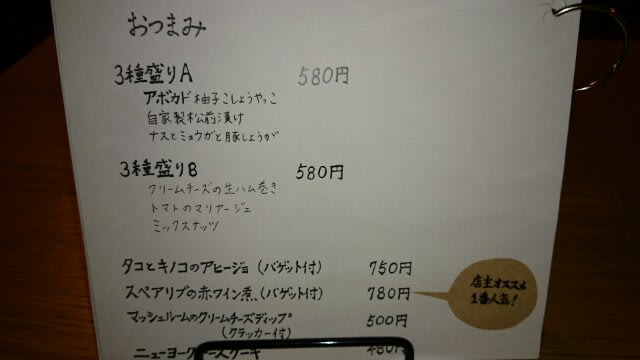 おつまみ
3種盛りA 580円
アボカド柚子こしょうやっこ
自家製松前漬け
ナスとミョウガと豚しょうが
3種盛りB 580円
クリームチーズの生ハム巻き
トマトのマリアージュ
ミックスナッツ
タコとキノコのアヒージョ(バゲット付) 750円
スペアリブの赤ワイン煮(バゲット付) 780円
店主オススメ
1番人気!
マッシュルームのクリームチーズディップ 500円
(クラッカー付)
ニューヨークチーズケーキ 480円